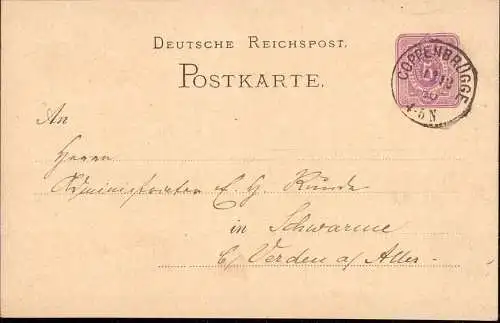 DEUTSCHE REICHSPOST.
POSTKARTE.
COPPENBRÜGGE
4-5 N
An
Herrn
Administrator E. G. Runde
in Schwarme
b/ Verden a/ Aller.